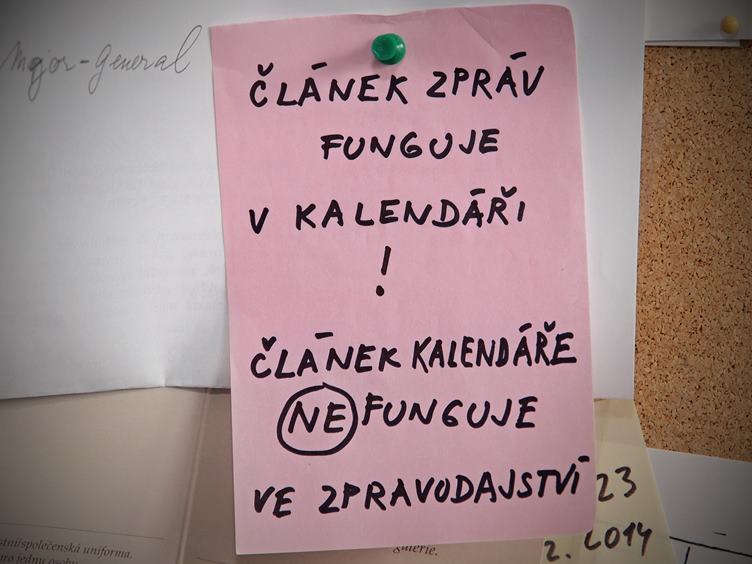 Major-General
ČLÁNEK ZPRÁV
FUNGUJE
V KALENDÁŘI
!
ČLÁNEK KALENDÁŘE
NEFUNGUJE
VE ZPRAVODAJSTVÍ
23
2. 2014
stní/společenská uniforma.
galerie.